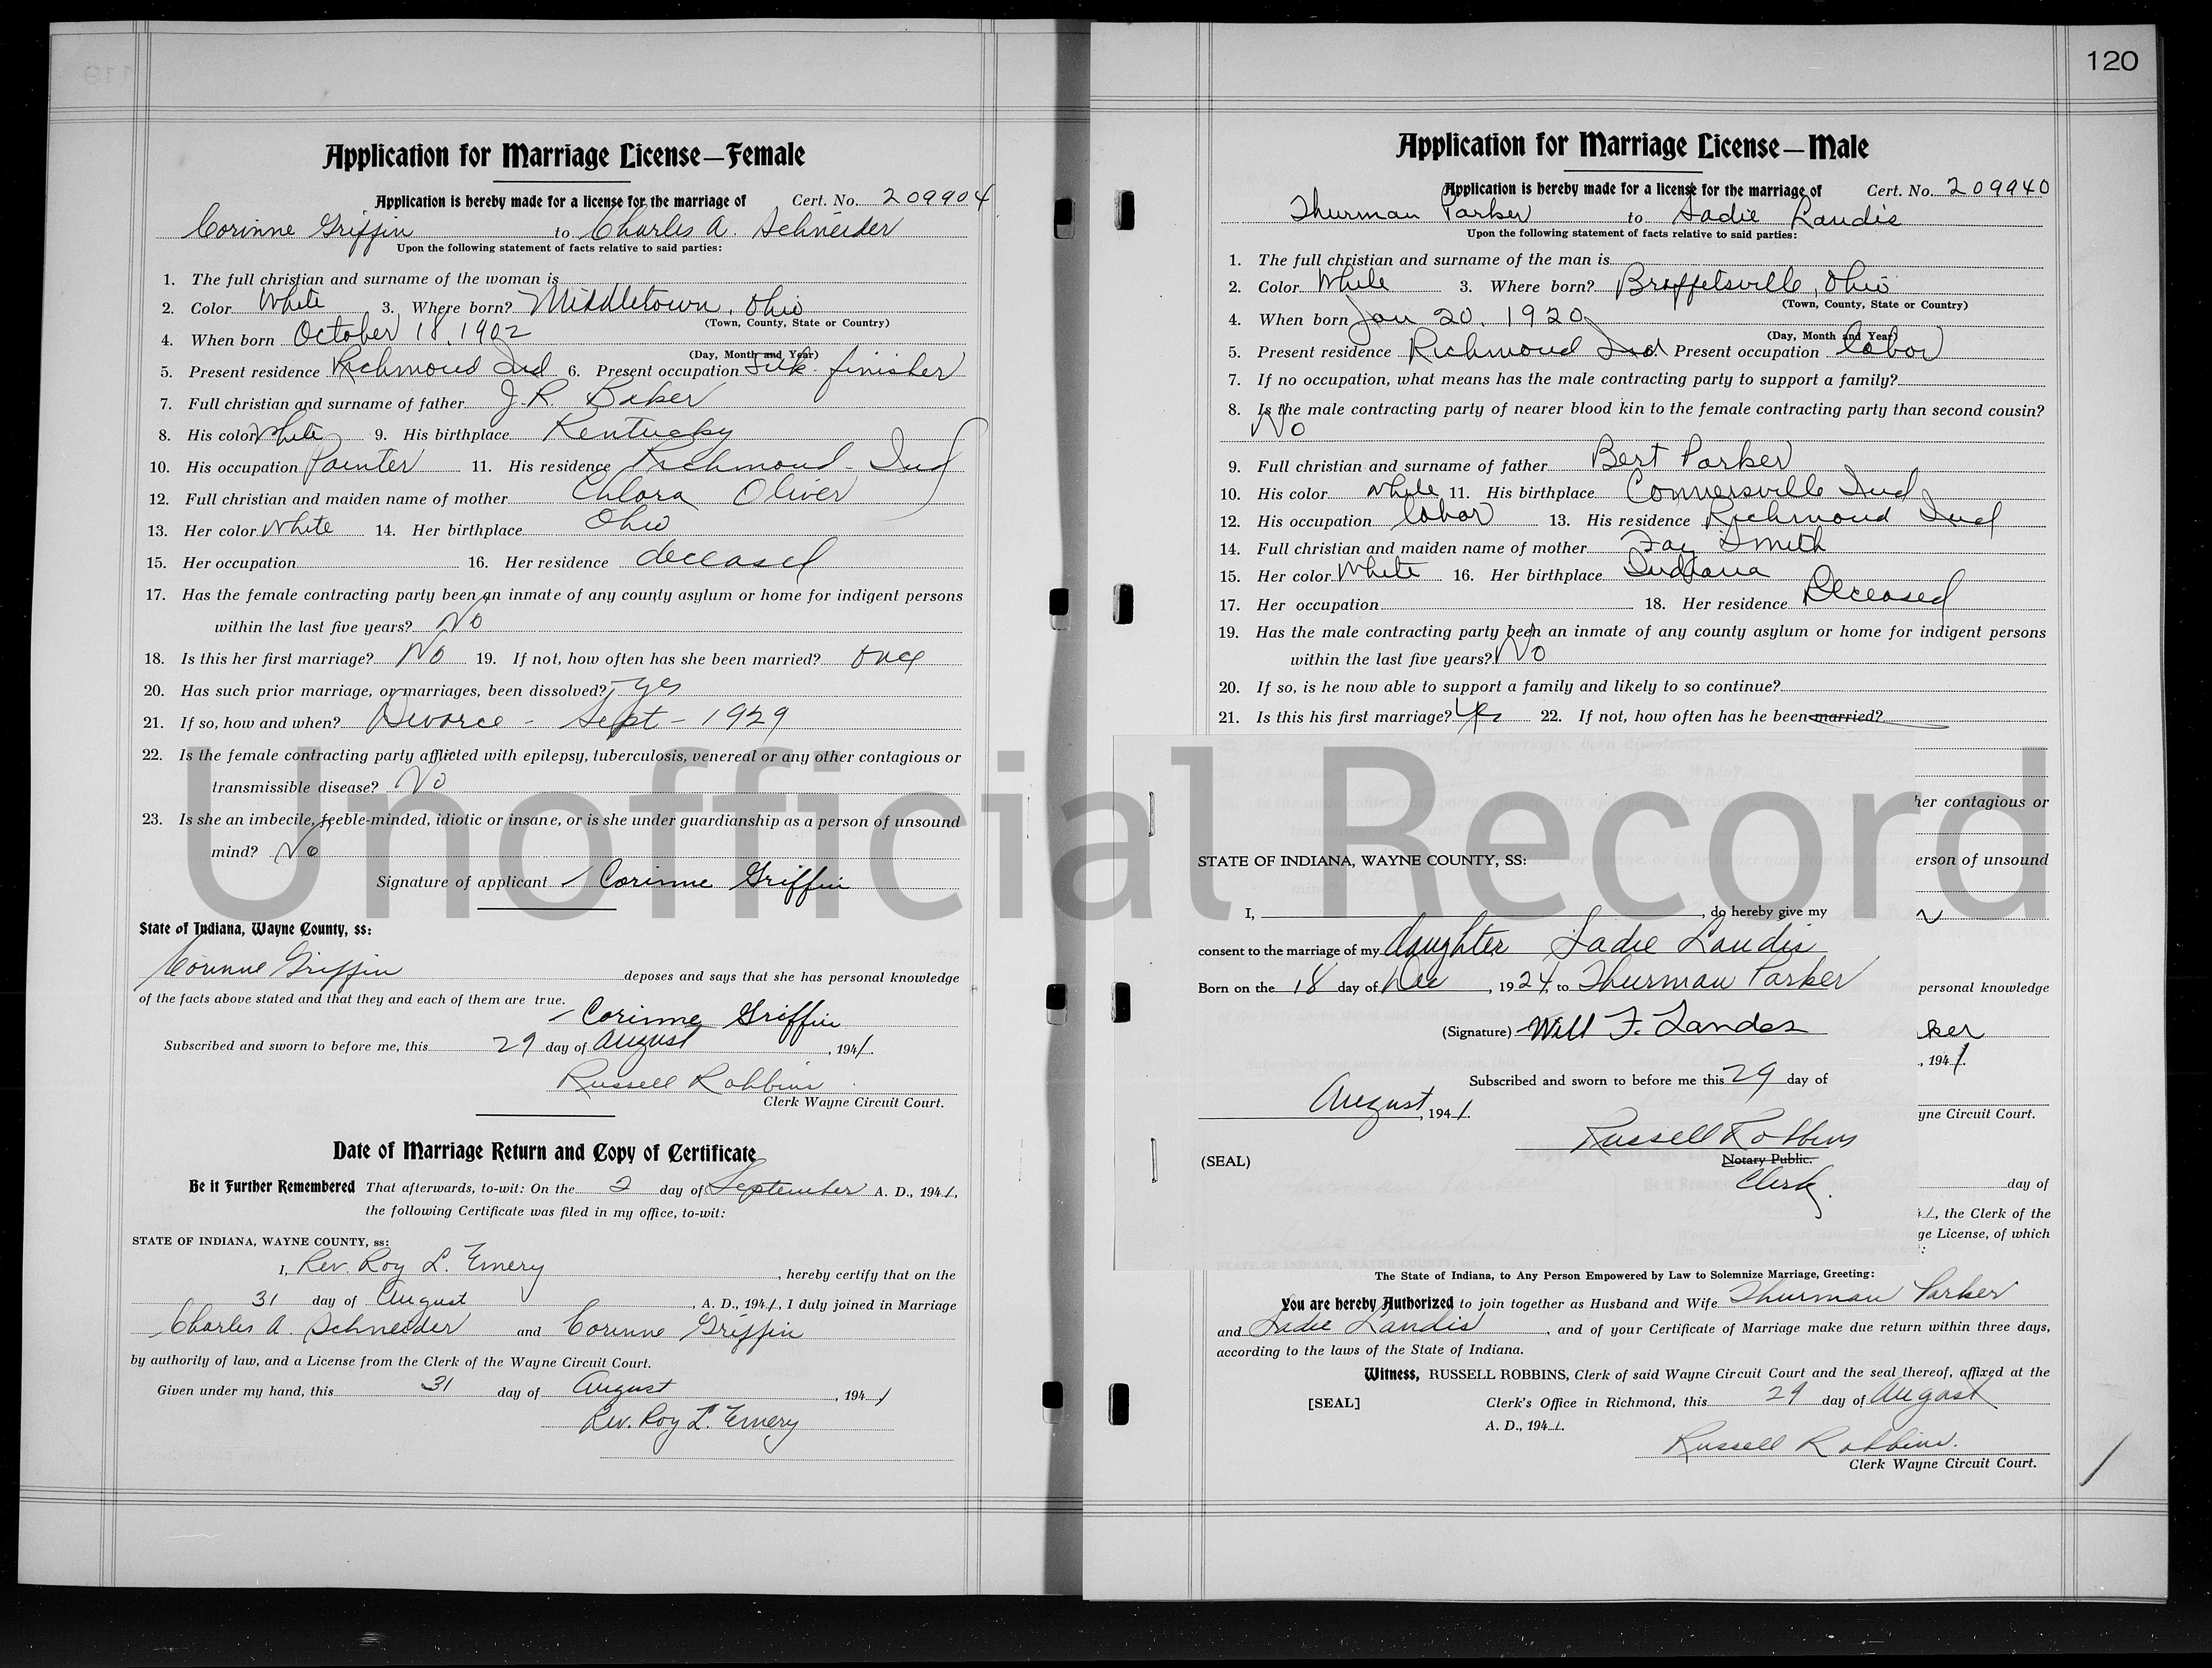 Application for Marriage License—Female
Application is hereby made for a license for the marriage of Cert. No. 209904
Corinne Griffin to Charles A. Schneider
Upon the following statement of facts relative to said parties:
1. The full christian and surname of the woman is
2. Color White 3. Where born? Middletown, Ohio
(Town, County, State or Country)
4. When born October 18, 1902
(Day, Month and Year)
5. Present residence Richmond Ind 6. Present occupation Silk finisher
7. Full christian and surname of father J. R. Baker
8. His color White 9. His birthplace Kentucky
10. His occupation Painter 11. His residence Richmond - Ind
12. Full christian and maiden name of mother Chlora Oliver
13. Her color White 14. Her birthplace Ohio
15. Her occupation 16. Her residence deceased
17. Has the female contracting party been an inmate of any county asylum or home for indigent persons
within the last five years? No
18. Is this her first marriage? No 19. If not, how often has she been married? once
20. Has such prior marriage, or marriages, been dissolved? yes
21. If so, how and when? Divorce - Sept - 1929
22. Is the female contracting party afflicted with epilepsy, tuberculosis, venereal or any other contagious or
transmissible disease? No
23. Is she an imbecile, feeble-minded, idiotic or insane, or is she under guardianship as a person of unsound
mind? No
Signature of applicant Corinne Griffin
State of Indiana, Wayne County, ss:
Corinne Griffin deposes and says that she has personal knowledge
of the facts above stated and that they and each of them are true.
Corinne Griffin
Subscribed and sworn to before me, this 29 day of August, 1941.
Russell Robbins
Clerk Wayne Circuit Court.
Date of Marriage Return and Copy of Certificate
Be it Further Remembered That afterwards, to-wit: On the 2 day of September A. D., 1941,
the following Certificate was filed in my office, to-wit:
STATE OF INDIANA, WAYNE COUNTY, ss:
I, Rev. Roy L. Emery, hereby certify that on the
31 day of August, A. D., 1941, I duly joined in Marriage
Charles A. Schneider and Corinne Griffin
by authority of law, and a License from the Clerk of the Wayne Circuit Court.
Given under my hand, this 31 day of August, 1941
Rev. Roy L. Emery
120
Application for Marriage License—Male
Application is hereby made for a license for the marriage of Cert. No. 209940
Thurman Parker to Sadie Landis
Upon the following statement of facts relative to said parties:
1. The full christian and surname of the man is
2. Color White 3. Where born? Braffetsville, Ohio
(Town, County, State or Country)
4. When born Jan 20, 1920
(Day, Month and Year)
5. Present residence Richmond Ind Present occupation labor
7. If no occupation, what means has the male contracting party to support a family?
8. Is the male contracting party of nearer blood kin to the female contracting party than second cousin?
No
9. Full christian and surname of father Bert Parker
10. His color White 11. His birthplace Connersville Ind
12. His occupation labor 13. His residence Richmond Ind
14. Full christian and maiden name of mother Fay Smith
15. Her color White 16. Her birthplace Indiana
17. Her occupation 18. Her residence Deceased
19. Has the male contracting party been an inmate of any county asylum or home for indigent persons
within the last five years? No
20. If so, is he now able to support a family and likely to so continue?
21. Is this his first marriage? Yes 22. If not, how often has he been married?
her contagious or
erson of unsound
STATE OF INDIANA, WAYNE COUNTY, SS:
I, , do hereby give my
consent to the marriage of my daughter Sadie Landis
Born on the 18 day of Dec, 1924, to Thurman Parker
personal knowledge
(Signature) Will F. Landes
ker
, 1941.
Subscribed and sworn to before me this 29 day of
August, 1941.
yne Circuit Court.
Russell Robbins
(SEAL) Notary Public.
Clerk.
day of
, the Clerk of the
ge License, of which
:
The State of Indiana, to Any Person Empowered by Law to Solemnize Marriage, Greeting:
You are hereby Authorized to join together as Husband and Wife Thurman Parker
and Sadie Landis, and of your Certificate of Marriage make due return within three days,
according to the laws of the State of Indiana.
Witness, RUSSELL ROBBINS, Clerk of said Wayne Circuit Court and the seal thereof, affixed at the
[SEAL] Clerk's Office in Richmond, this 29 day of August
A. D., 1941.
Russell Robbins.
Clerk Wayne Circuit Court.
Unofficial Record